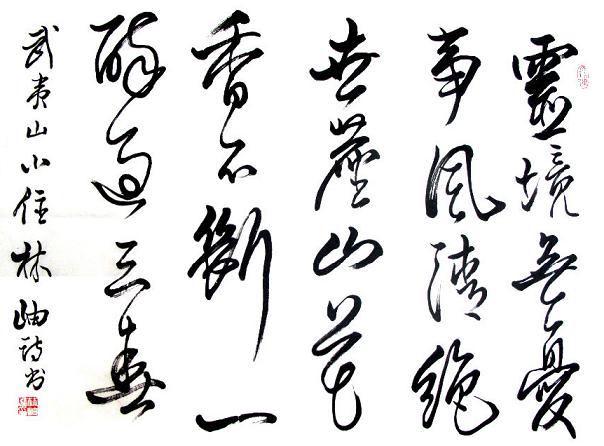 靈境無憂
事風清絕
世塵山花
香不斷一
醉過三春
武夷山小住林岫詩書